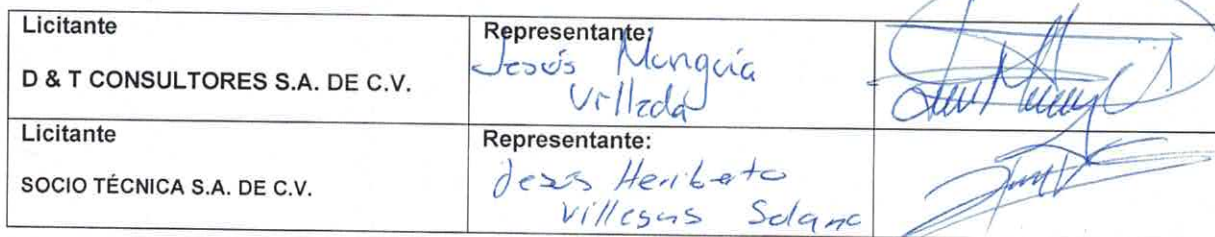 Licitante
D & T CONSULTORES S.A. DE C.V.
Representante:
Jesús Munguía
Villeda
Licitante
SOCIO TÉCNICA S.A. DE C.V.
Representante:
Jesús Heriberto
Villegas Solano